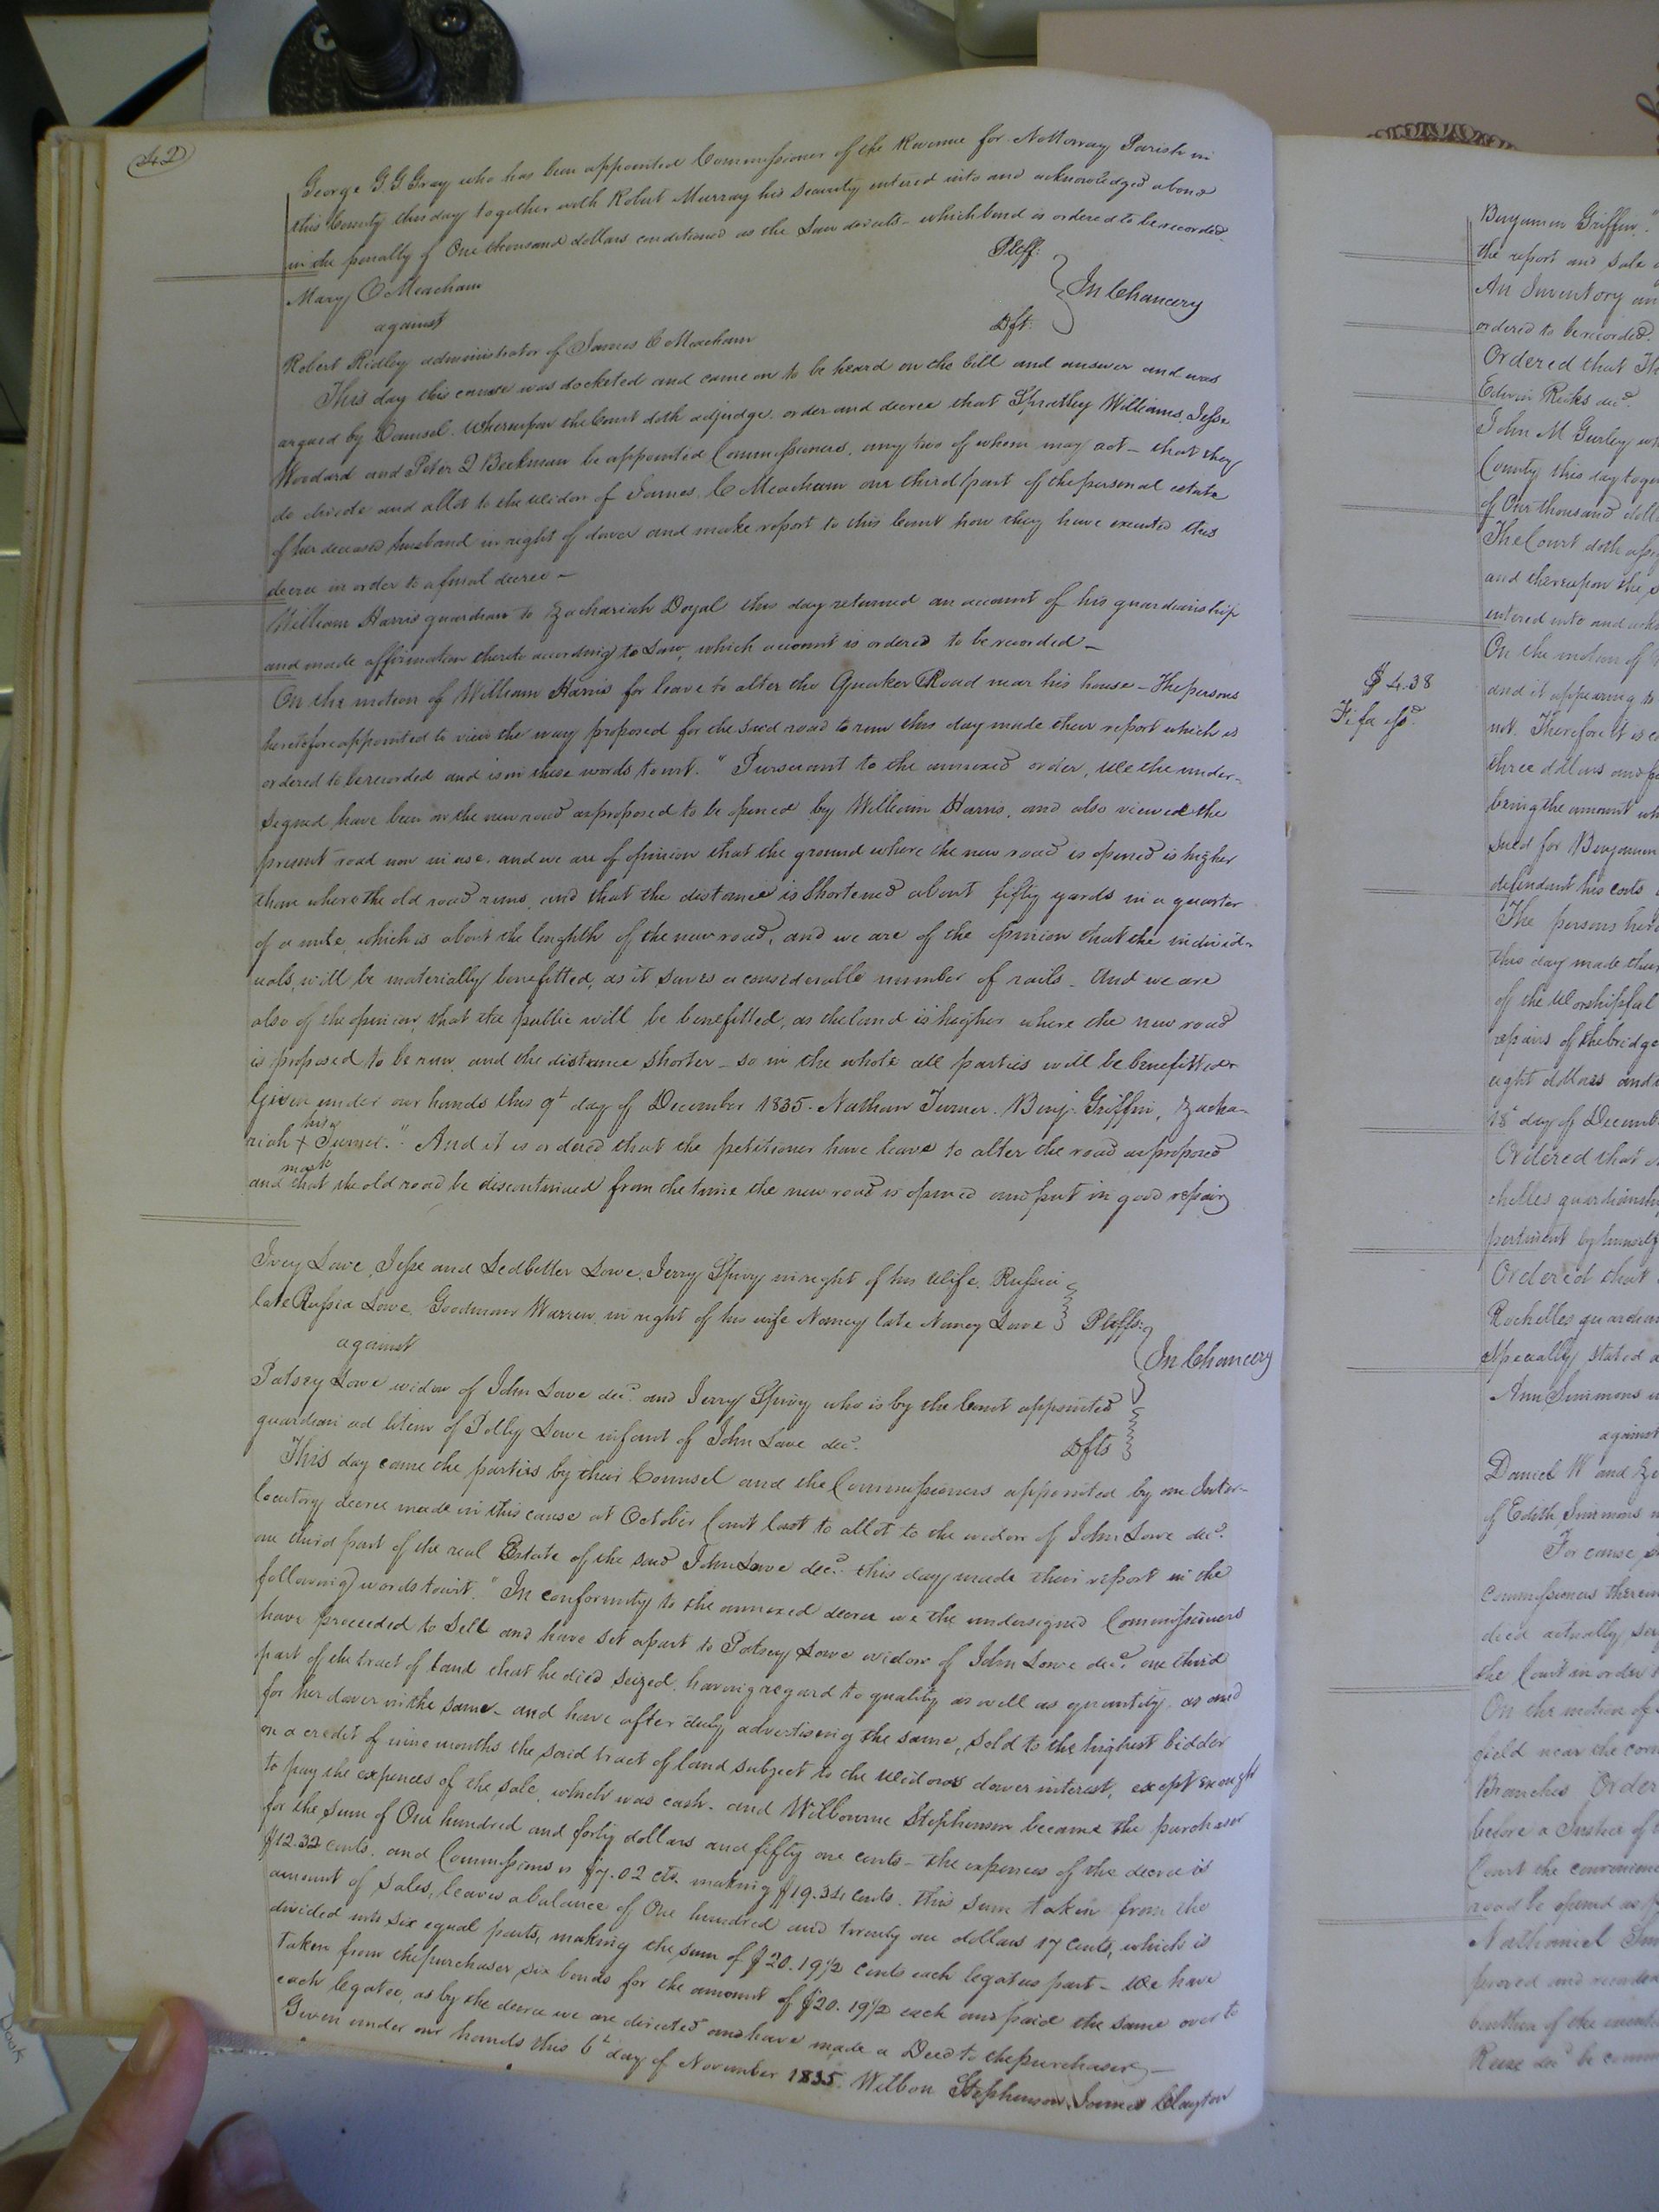 42
George G. G. Gray who has been appointed Commissioner of the Revenue for Nottoway Parish in
this County this day together with Robert Murray his security entered into and acknowledged a bond
in the penalty of One thousand dollars conditioned as the Law directs - which bond is ordered to be recorded.
Mary C Meacham Pltff:
against In Chancery
Robert Ridley administrator of James C Meacham Dft:
This day this cause was docketed and came on to be heard on the bill and answer and was
argued by Counsel. Whereupon the Court doth adjudge, order and decree that Spratley Williams, Jesse
Woodard and Peter J Beekman be appointed Commissioners, any two of whom may act - that they
do divide and allot to the widow of James C Meacham one third part of the personal estate
of her deceased husband in right of dower and make report to this Court how they have executed this
decree in order to a final decree -
William Harris guardian to Zachariah Doyal this day returned an account of his guardianship
and made affirmation thereto according to Law, which account is ordered to be recorded -
On the motion of William Harris for leave to alter the Quaker Road near his house - The persons
heretofore appointed to view the way proposed for the said road to run this day made their report which is
ordered to be recorded and is in these words towit. "Pursuant to the annexed order, We the under-
signed have been on the new road as proposed to be opened by William Harris, and also viewed the
present road now in use, and we are of opinion that the ground where the new road is opened is higher
than where the old road runs, and that the distance is shortened about fifty yards in a quarter
of a mile, which is about the lenghth of the new road, and we are of the opinion that the individ-
uals, will be materially benefitted, as it saves a considerable number of rails - And we are
also of the opinion, that the public will be benefitted, as the land is higher where the new road
is proposed to be run, and the distance shorter - so in the whole all parties will be benefitted
Given under our hands this 9t day of December 1835. Nathan Turner. Benj. Griffin, Zacha-
his
riah + Turner." And it is ordered that the petitioner have leave to alter the road as proposed
mark
and that the old road be discontinued from the time the new road is opened and put in good repair
Ivey Lowe, Jesse and Ledbetter Lowe, Jerry Spivy in right of his Wife Russia
late Russia Lowe, Goodman Warren in right of his wife Nancy late Nancy Lowe Pltffs:
against In Chancery
Patsey Lowe widow of John Lowe decd. and Jerry Spivy who is by the Court appointed
guardian ad litem of Polly Lowe infant of John Lowe decd. Dfts
This day came the parties by their Counsel and the Commissioners appointed by an Inter-
locutory decree made in this cause at October Court last to allot to the widow of John Lowe decd.
one third part of the real Estate of the said John Lowe decd. this day made their report in the
following words towit. "In conformity to the annexed decree we the undersigned Commissioners
have proceeded to Sell and have set apart to Patsey Lowe widow of John Lowe decd. one third
part of the tract of land that he died seized, having regard to quality as well as quantity, as and
for her dower in the same - and have after duly advertising the same, sold to the highest bidder
on a credit of nine months the said tract of land subject to the Widows dower interest, except enough
to pay the expences of the sale, which was cash - and Wilbourne Stephenson became the purchaser
for the sum of One hundred and forty dollars and fifty one cents - the expences of the decree is
$12.32 cents. and Commissions is $7.02 cts. making $19.34 cents. this sum taken from the
amount of sales, leaves a balance of One hundred and twenty one dollars 17 cents, which is
divided into six equal parts, making the sum of $20.19½ cents each legatees part - We have
taken from the purchaser six bonds for the amount of $20.19½ each and paid the same over to
each legatee, as by the decree we are directed and have made a Deed to the purchaser -
Given under our hands this 6t day of November 1835. Wilbon Stephenson, James Clayton
$4.38
Fi fa isd.
Benjamin Griffin
the report and sale
An Inventory
ordered to be recorded.
Ordered that
Edwin Ricks decd.
John M Gurley
County this day
of One thousand
The Court doth
and thereupon the
entered into and
On the motion of
and it appearing to
not. Therefore it is
three dollars and
being the amount
sued for Benjamin
defendant his costs
The persons
this day made their
of the Worshipful
repairs of the bridge
eight dollars and
18t day of
Ordered that
guardian
by himself
Ordered that
Rochelles guardian
specially stated
Ann Simmons
against
Daniel W and
of Edith Simmons
For cause
Commissioners
died actually
the Court in order
On the motion of
field near the
Branches Order
before a Justice of
Court the
road be opened as
Nathaniel
proved and